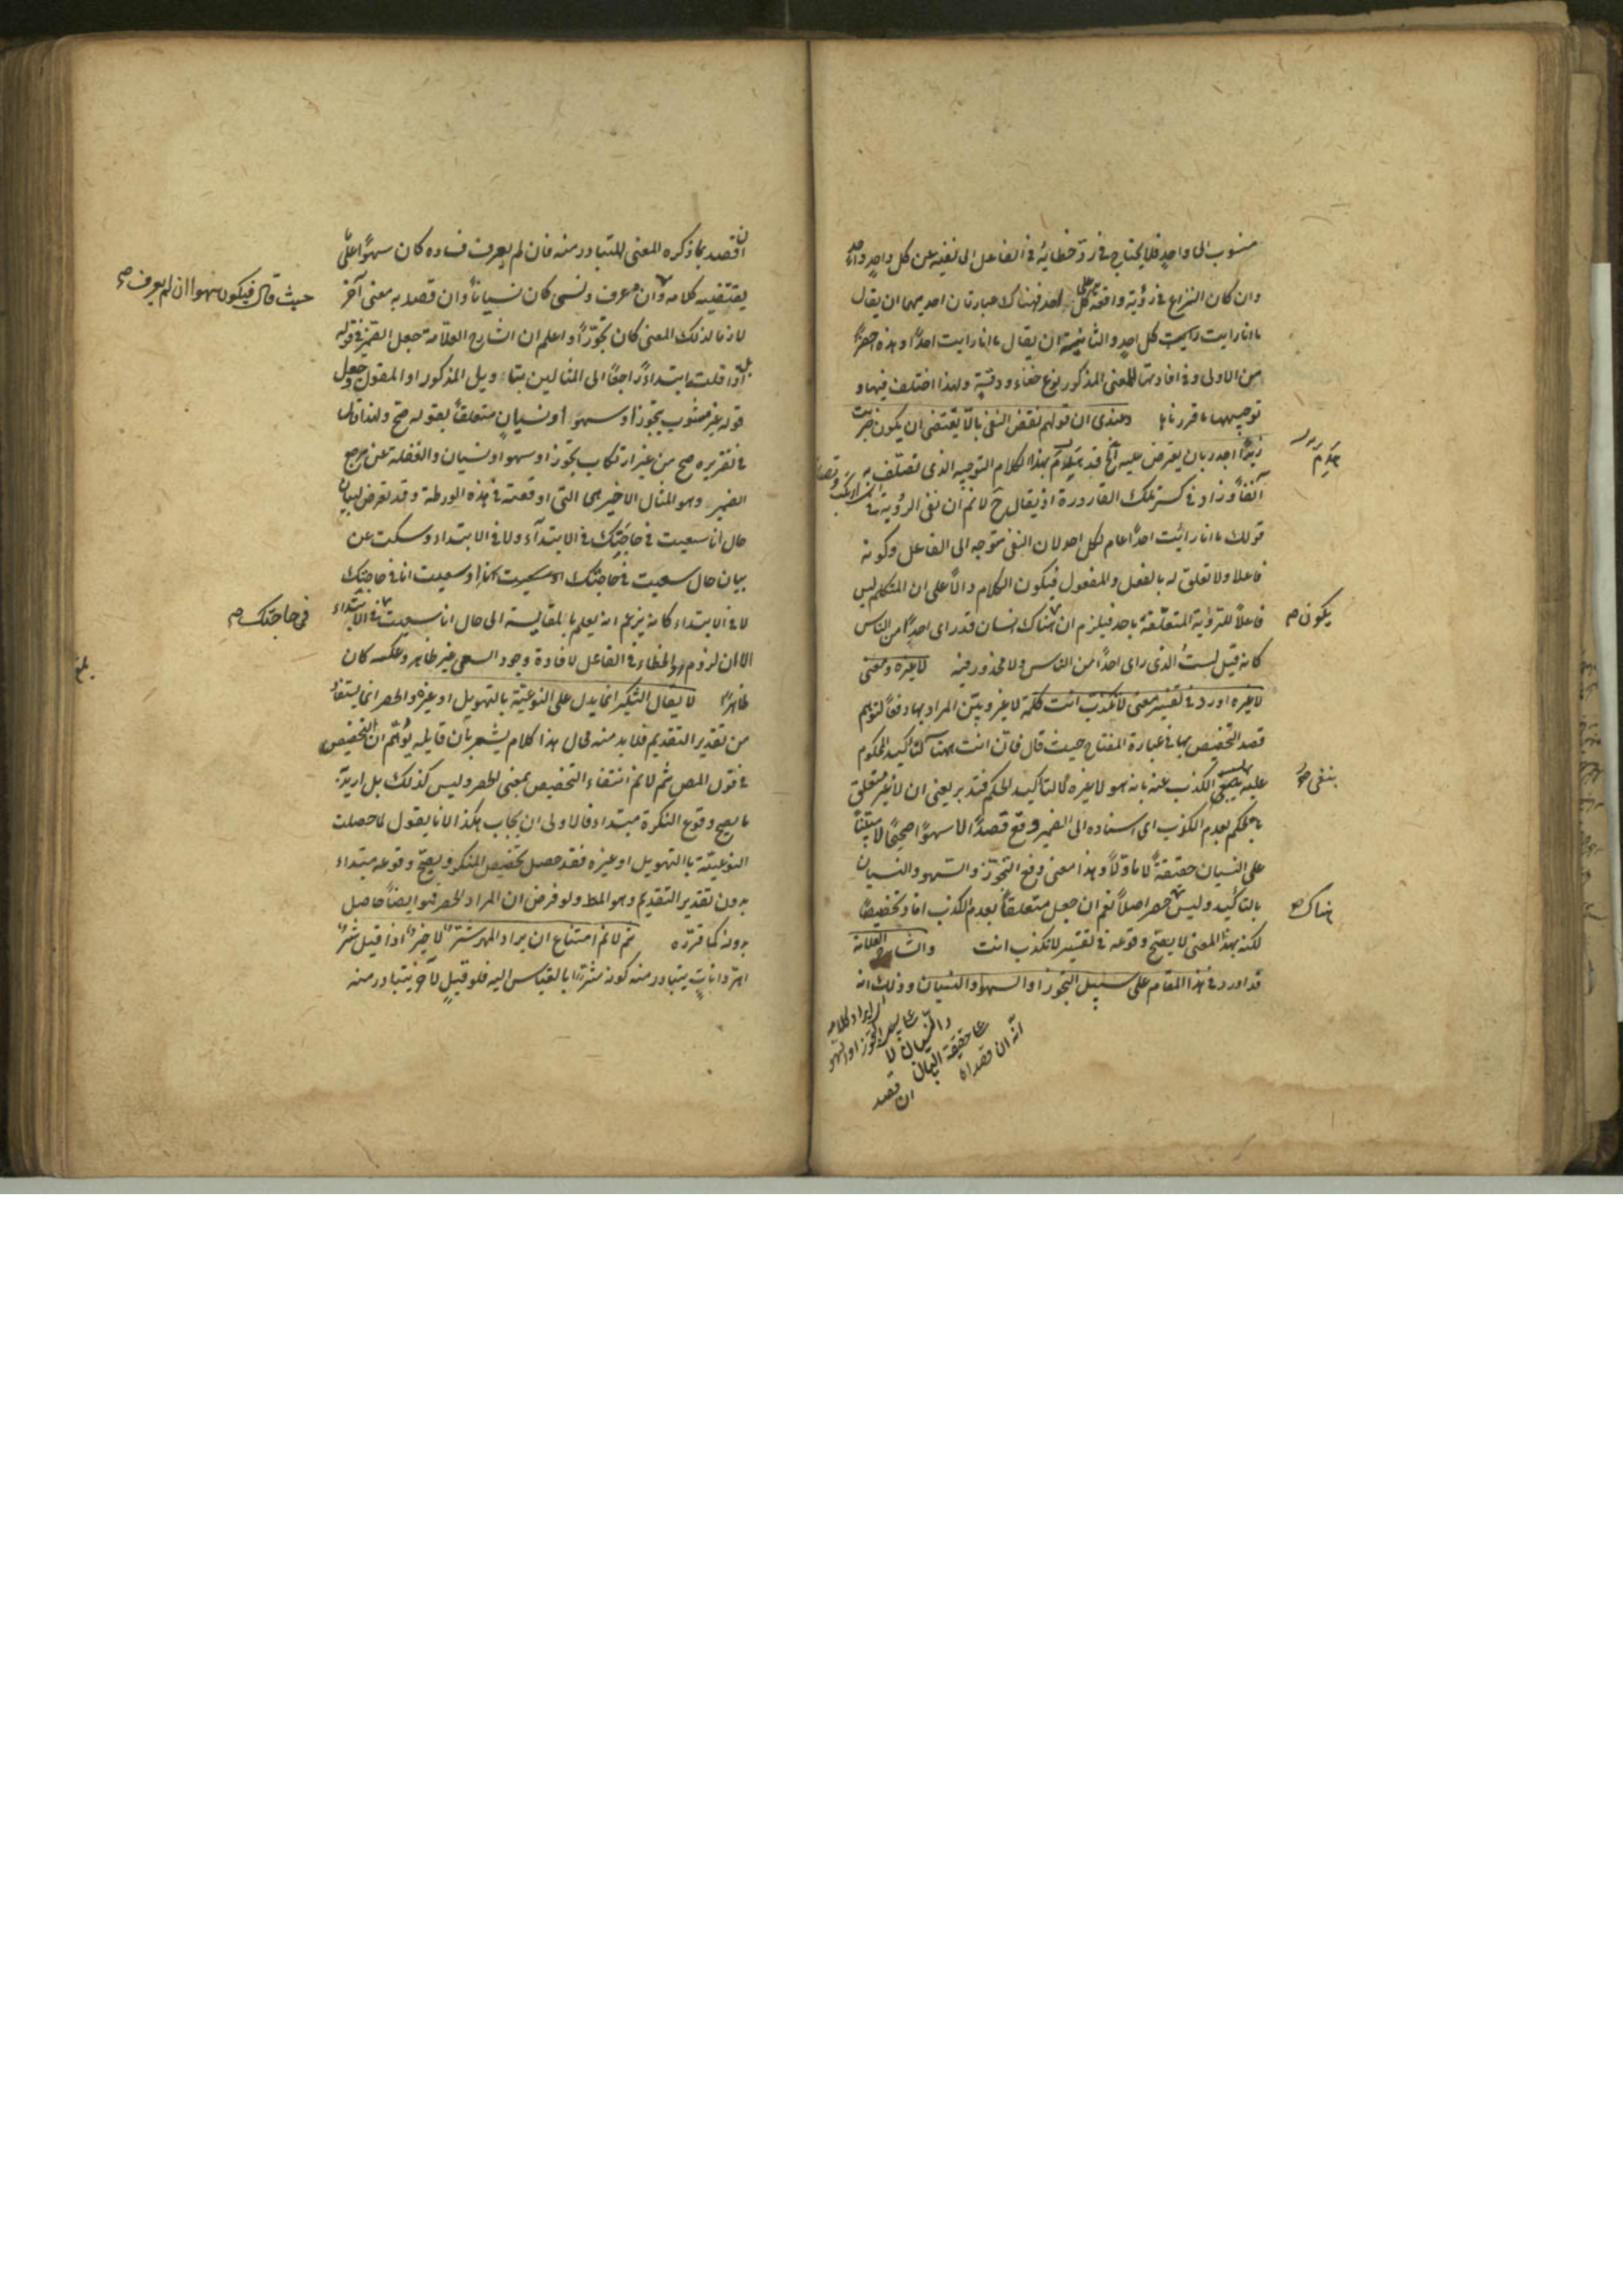 منسوب الى واحد فلا يحتاج فى رد خطائه فى الفاعل الى نفيه عن كل واحد واحد
وان كان النزاع فى رؤية واقعة على كل احد فهناك عبارتان احديهما ان يقال
ما انا رايت كل احد والثانية ان يقال ما انا رايت احدًا وهذه اخصر
من الاولى وفى افادتها للمعنى المذكور نوع خفاء ودقة ولهذا اختلف فيها و
توجيهها ما قررناها وعندى ان قولهم نقض النفى بالّا يقتضى ان يكون ضربت
زيدًا اجدر بان يعترض عليه بهذا الكلام التوجيه الذى تصلّف به
آنفًا وزاد فى كسر تلك القارورة اذ يقال ح لا نم ان نفى الرؤية فى
قولك ما انا رأيت احدًا عام لكل احد لان النفى متوجه الى الفاعل وكونه
فاعلا ولا تعلق له بالفعل والمفعول فيكون الكلام دالًا على ان المتكلم ليس
فاعلًا للرؤية المتعلقة باحد فيلزم ان هناك انسان قد راى احدًا من الناس
يكون صح
كانه قيل لستُ الذى راى احدًا من الناس ولا محذور فيه لا غيره ومعنى
لا غيره اورد فى تفسير معنى لا تكذب انت كلمة لا غير وبيّن المراد بها دفعًا لتوهم
قصد التخصيص بها فى عبارة المفتاح حيث قال فانّ انت هناك لتأكيد المحكوم
عليه بنفى الكذب عنه بانه هو لا غيره لا لتأكيد الحكم فتدبر يعنى ان لا غير متعلق
بالحكم بعدم الكذب اى اسناده الى الضمير وقع قصدًا لا سهوًا صحيحًا لا مبنيًّا
على النسيان حقيقةً لا ماوّلًا وهذا معنى دفع التجوّز والسهو والنسيان
بالتأكيد وليس هناك حصر اصلًا نعم ان جعل متعلقًا بعدم الكذب افاد تخصيصًا
هناك صح
لكنه بهذا المعنى لا يصحّ وقوعه فى تفسير لا تكذب انت والشارح العلامة
قد اورد فى هذا المقام على سبيل التجوز او السهو او النسيان وذلك انه
انّه ان قصد
ان قصد بما ذكره المعنى المتبادر منه فان لم يعرف فساده كان سهوًا على
يقتضيه كلامه وان عرف ونسى كان نسيانًا وان قصد به معنى آخر
حيث قال فيكون سهوا ان لم يعرف صح
لازما لذلك المعنى كان تجوّزًا واعلم ان الشارح العلّامة جعل الضمير فى قوله
اذا قلت ابتداءً راجعًا الى المثالين بتاويل المذكور او المقول وجعل
قوله غير مشوب بتجوز او سهو او نسيان متعلقًا بقوله صح ولهذا قال
فى تقريره صح من غير ارتكاب تجوّز او سهو او نسيان والغفلة عن مرجع
الضمير وهو المثال الاخير هى التى اوقعته فى هذه الورطة وقد تعرض لبيان
حال انا سعيت فى حاجتك فى الابتدآء ولا فى الابتداء وسكت عن
بيان حال سعيت فى حاجتك او سعيت انا فى حاجتك
لا فى الابتداء كانه يزعم انه يعلم بالمقايسة الى حال انا سعيت فى الابتداء
فى حاجتك صح
الا ان لزوم الخطاء فى الفاعل لافادة وجود السعى غير ظاهر وعكسه كان
ظاهرًا لا يقال التنكير انما يدل على النوعيّة بالتهويل او غيره والحصر انما يستفاد
من تقدير التقديم فلا بد منه قال هذا كلام يشعر بان قايله توهّم ان التخصيص
فى قول المص ثم لا نم انتفاء التخصيص بمعنى الحصر وليس كذلك بل اريد به
ما يصح وقوع النكرة مبتداء فالاولى ان يجاب هكذا لانا نقول لما حصلت
النوعيّة بالتهويل او غيره فقد حصل تخصيص المنكر ويصحّ وقوعه مبتداء
بدون تقدير التقديم وهو المط ولو فرض ان المراد الحصر فهو ايضًا حاصل
بدونه كما قرّره ثم لا نم امتناع ان يراد المهر شرّ لا خير اذا قيل شرّ
اهرّ ذا ناب يتبادر منه كونه شرًّا بالقياس اليه فلو قيل لا خير يتبادر منه
بلغ